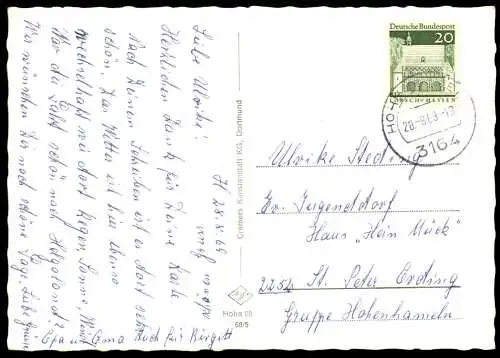 H. 28.8.69
Liebe Ulrike!
Herzlichen Dank für Deine Karte
Nach Deinem Schreiben ist es dort sehr
schön. Das Wetter ist hier ebenso
wechselhaft wie dort Regen Sonne, Wind
War die Fahrt schön nach Helgoland?
Wir wünschen Dir noch schöne Tage, Liebe
Opa und Oma Auch für Birgitt
Cramers Kunstanstalt KG, Dortmund
Hoha 09
68/5
Deutsche Bundespost
20
LORSCH/HESSEN
28.-8.69-15
3164
Ulrike Steding
Ev. Jugenddorf
Haus "Hein Mück"
2252 St. Peter Ording
Gruppe Hohenhameln